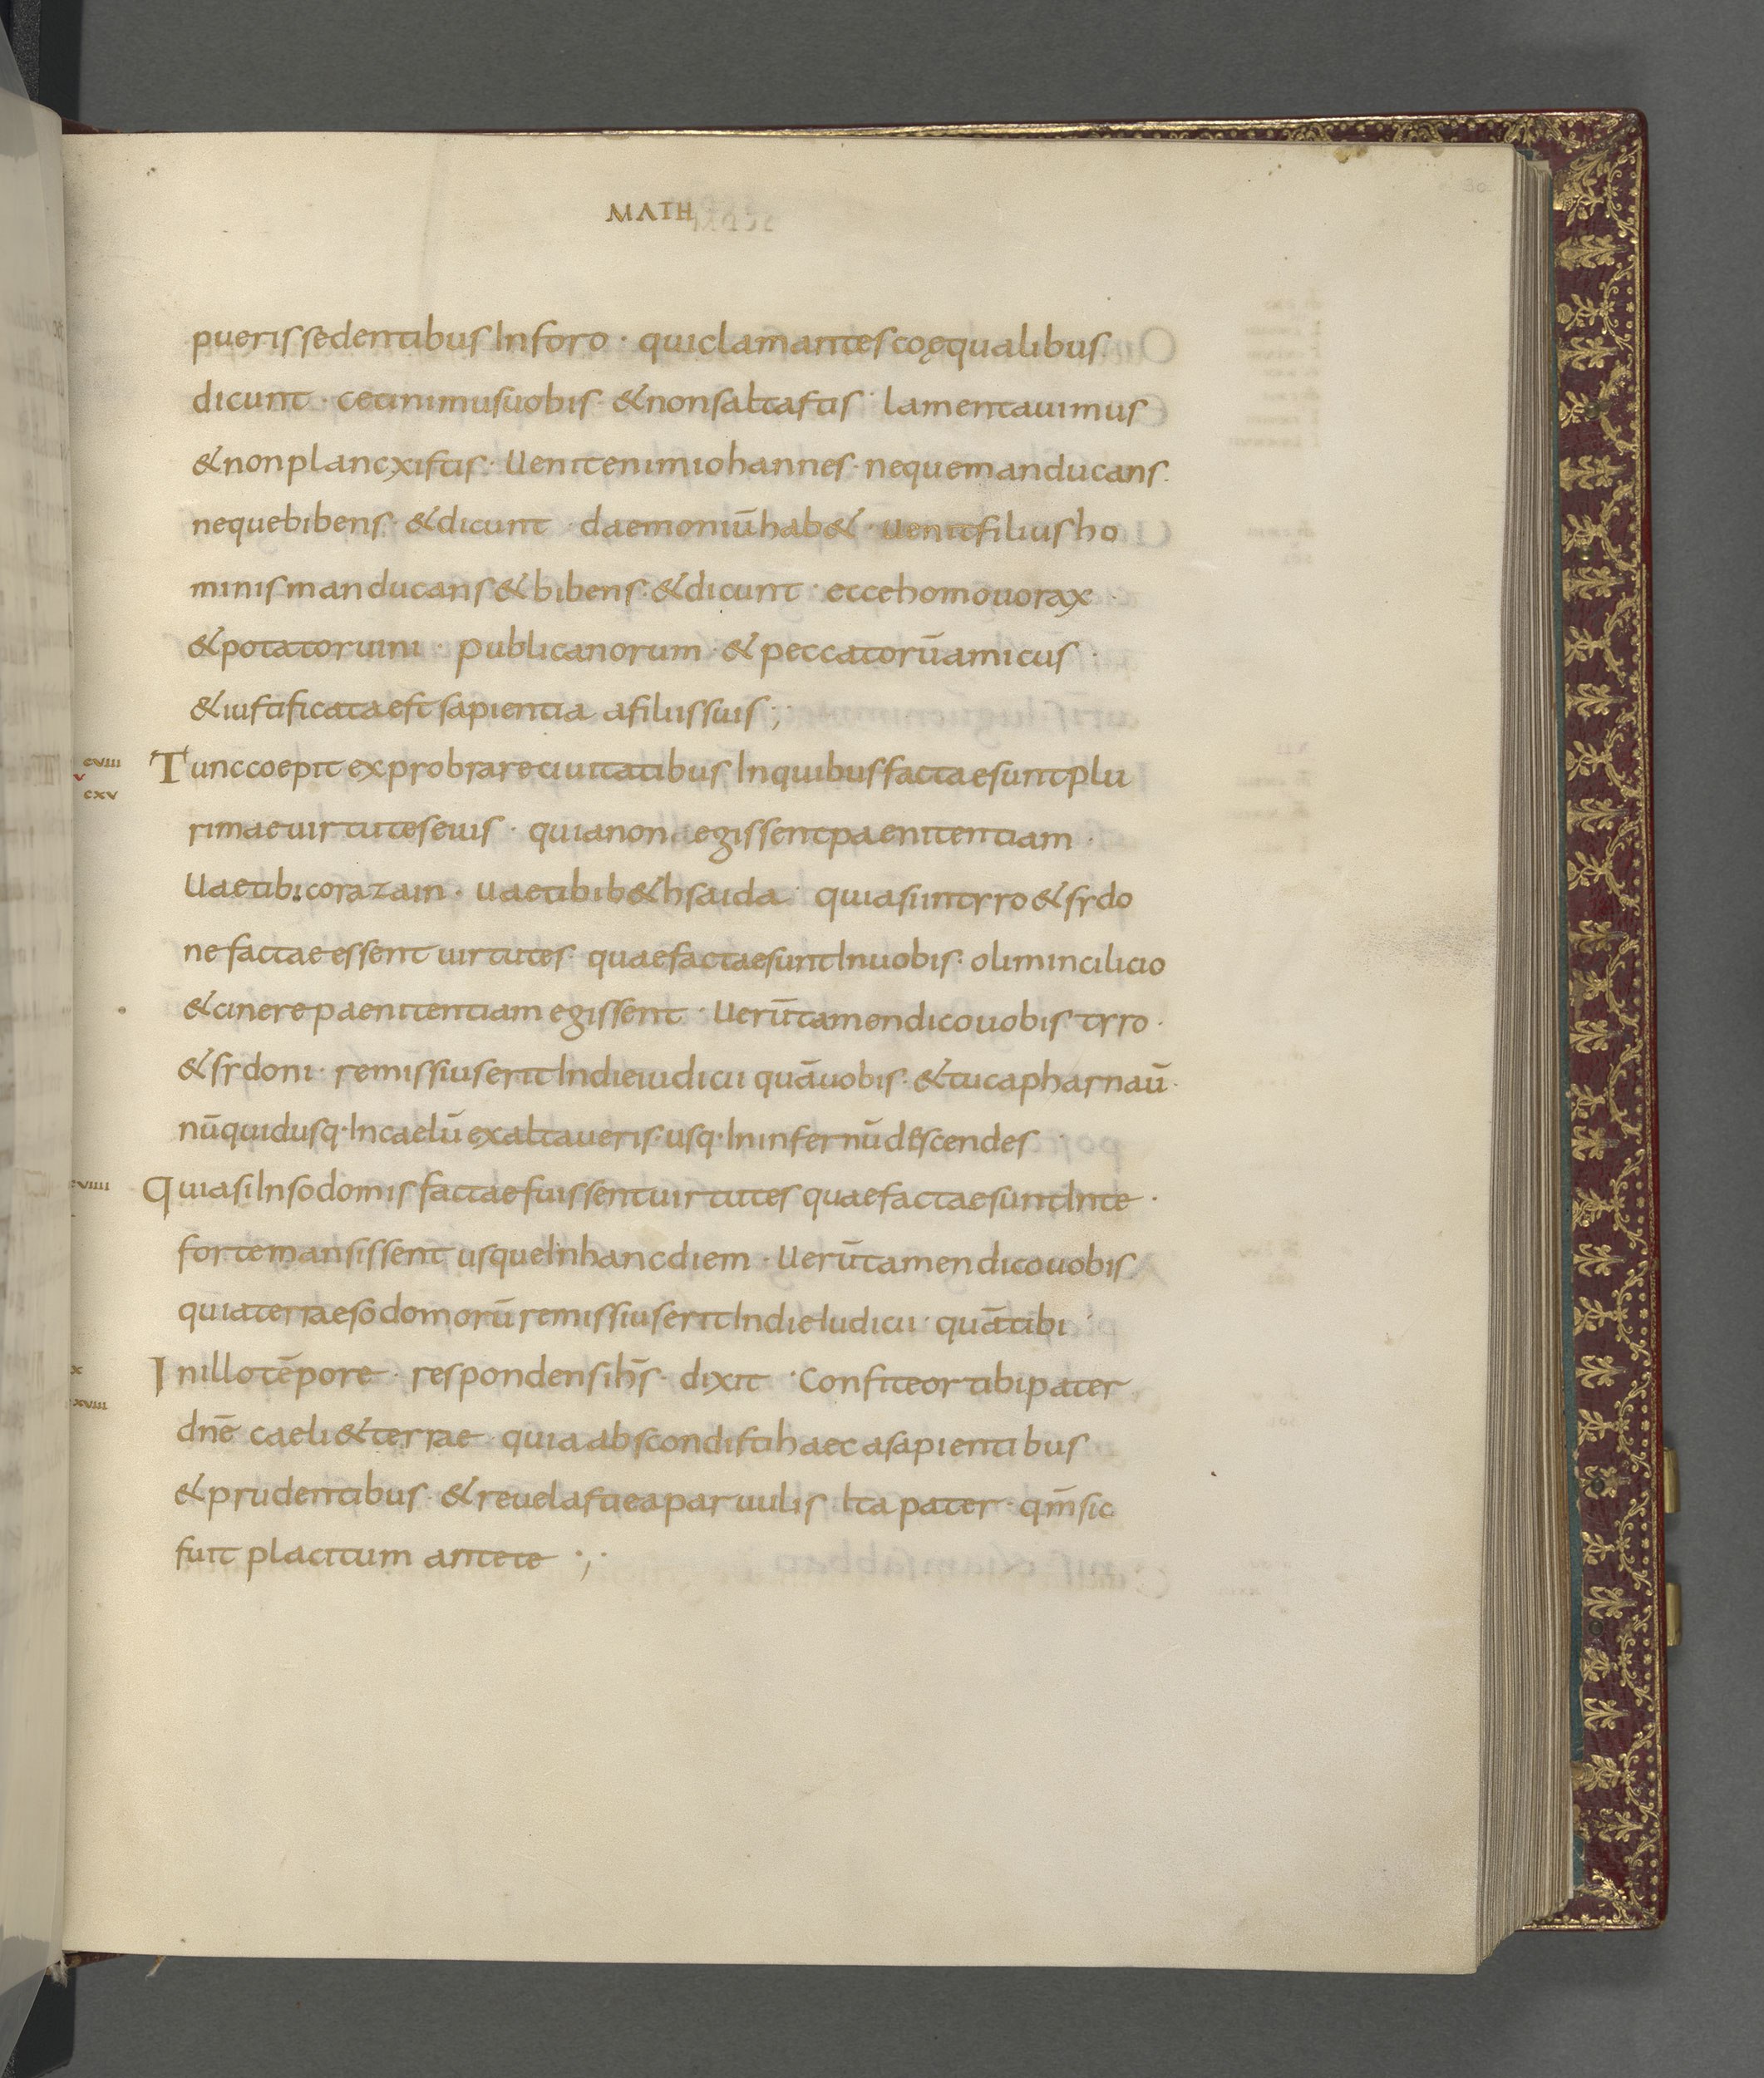 30
MATH
puerissedentibus Inforo · quiclamantes coęqualibus
dicunt · cecinimusuobis · &nonsaltastis · lamentauimus
&nonplancxistis · Uenitenimiohannes · nequemanducans ·
nequebibens · &dicunt · daemoniūhab& · uenitfiliusho
minismanducans&bibens · &dicunt · eccehomouorax ·
&potatoruini · publicanorum · &peccatorūamicus ·
&iustificataestsapientia afiliissuis ;
cviii Tunccoepitexprobrareciuitatibus Inquibusfactaesuntplu
v
cxv
rimaeuirtuteseius · quianon egissentpaenitentiam ·
Uaetibicorazain · uaetibib&hsaida · quiasiintyro&sydo
nefactaeessent uirtutes · quaefactaesuntInuobis · olimincilicio
&cinerepaenitentiamegissent · Uerūtamendicouobis tyro ·
&sydoni · remissiuseritIndieiudicii quāuobis · &tucapharnaū ·
nūquidusq·Incaelū exaltaueris · usq·Ininfernūdescendes
viiii QuiasiInsodomisfactaefuissentuirtutes quaefactaesuntInte ·
fortemansissent usqueInhancdiem · Uerūtamendicouobis
quiaterraesodomorūremissiuseritIndieIudicii · quātibi ·
x Inillotēpore · respondensihs̄ · dixit · Confiteortibipater
xviii
dnē caeli&terrae · quiaabscondistihaec asapientibus
&prudentibus · &reuelastieaparuulis Ita pater · qm̄sic
fuit placitum antete ·,·